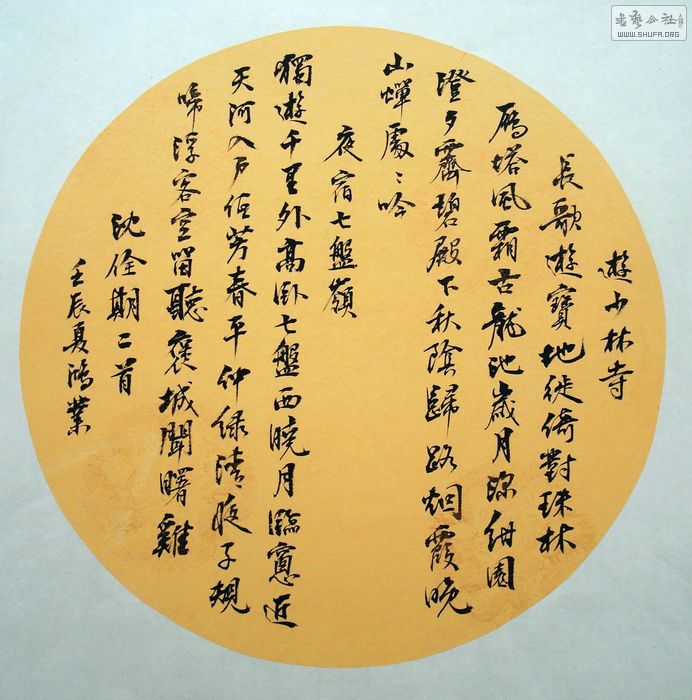 遊少林寺
長歌遊寶地徙倚對珠林
鴈塔風霜古龍池歲月深紺園
澄夕霽碧殿下秋陰歸路烟霞晚
山蟬處〻吟
夜宿七盤嶺
獨遊千里外高卧七盤西曉月臨窻近
天河入户低芳春平仲緑清夜子規
啼浮客空留聽褒城聞曙雞
沈佺期二首
壬辰夏鴻業
書藝公社
WWW.SHUFA.ORG